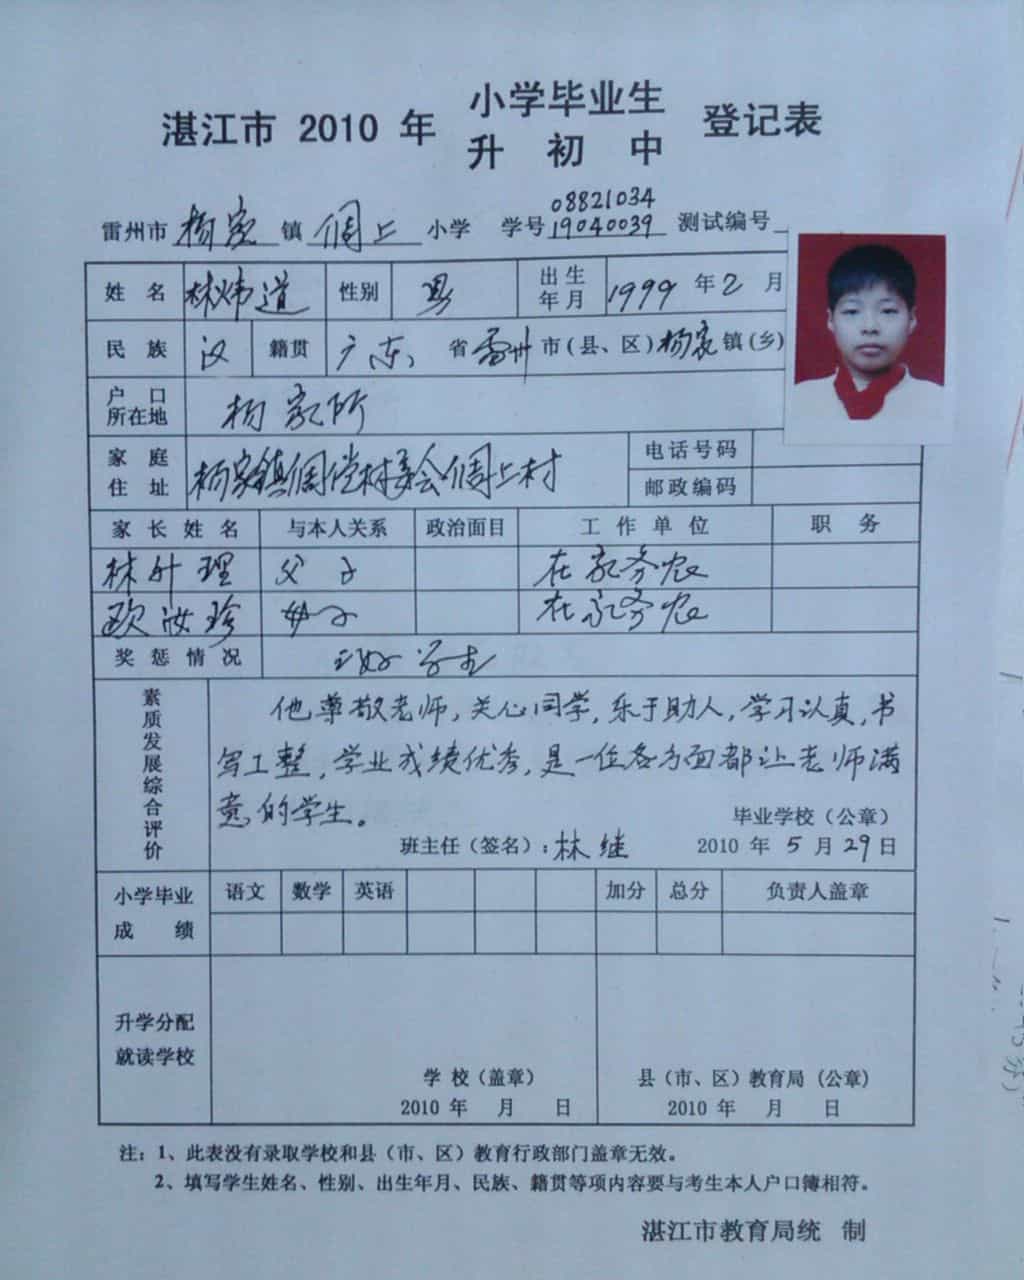 湛江市 2010 年 小学毕业生 登记表
升 初 中
08821034
雷州市 杨家 镇 倜上 小学 学号 19040039 测试编号
姓 名 林炜道 性别 男 出生年月 1999 年 2 月
民 族 汉 籍贯 广东 省 雷州 市(县、区) 杨家 镇(乡)
户 口 所在地 杨家所
家 庭 住 址 杨家镇倜 村委会倜上村 电话号码
邮政编码
家 长 姓 名 与本人关系 政治面目 工 作 单 位 职 务
林 理 父子 在家务农
欧汝珍 母子 在家务农
奖 惩 情 况 三好学生
素质发展综合评价
他尊敬老师,关心同学,乐于助人,学习认真,书
写工整,学业成绩优秀,是一位各方面都让老师满
意的学生。
毕业学校(公章)
班主任(签名):林继 2010 年 5 月 29 日
小学毕业 成 绩 语文 数学 英语 加分 总分 负责人盖章
升学分配
就读学校
学 校(盖章) 县(市、区)教育局 (公章)
2010 年 月 日 2010 年 月 日
注:1、此表没有录取学校和县(市、区)教育行政部门盖章无效。
2、填写学生姓名、性别、出生年月、民族、籍贯等项内容要与考生本人户口簿相符。
湛江市教育局统 制